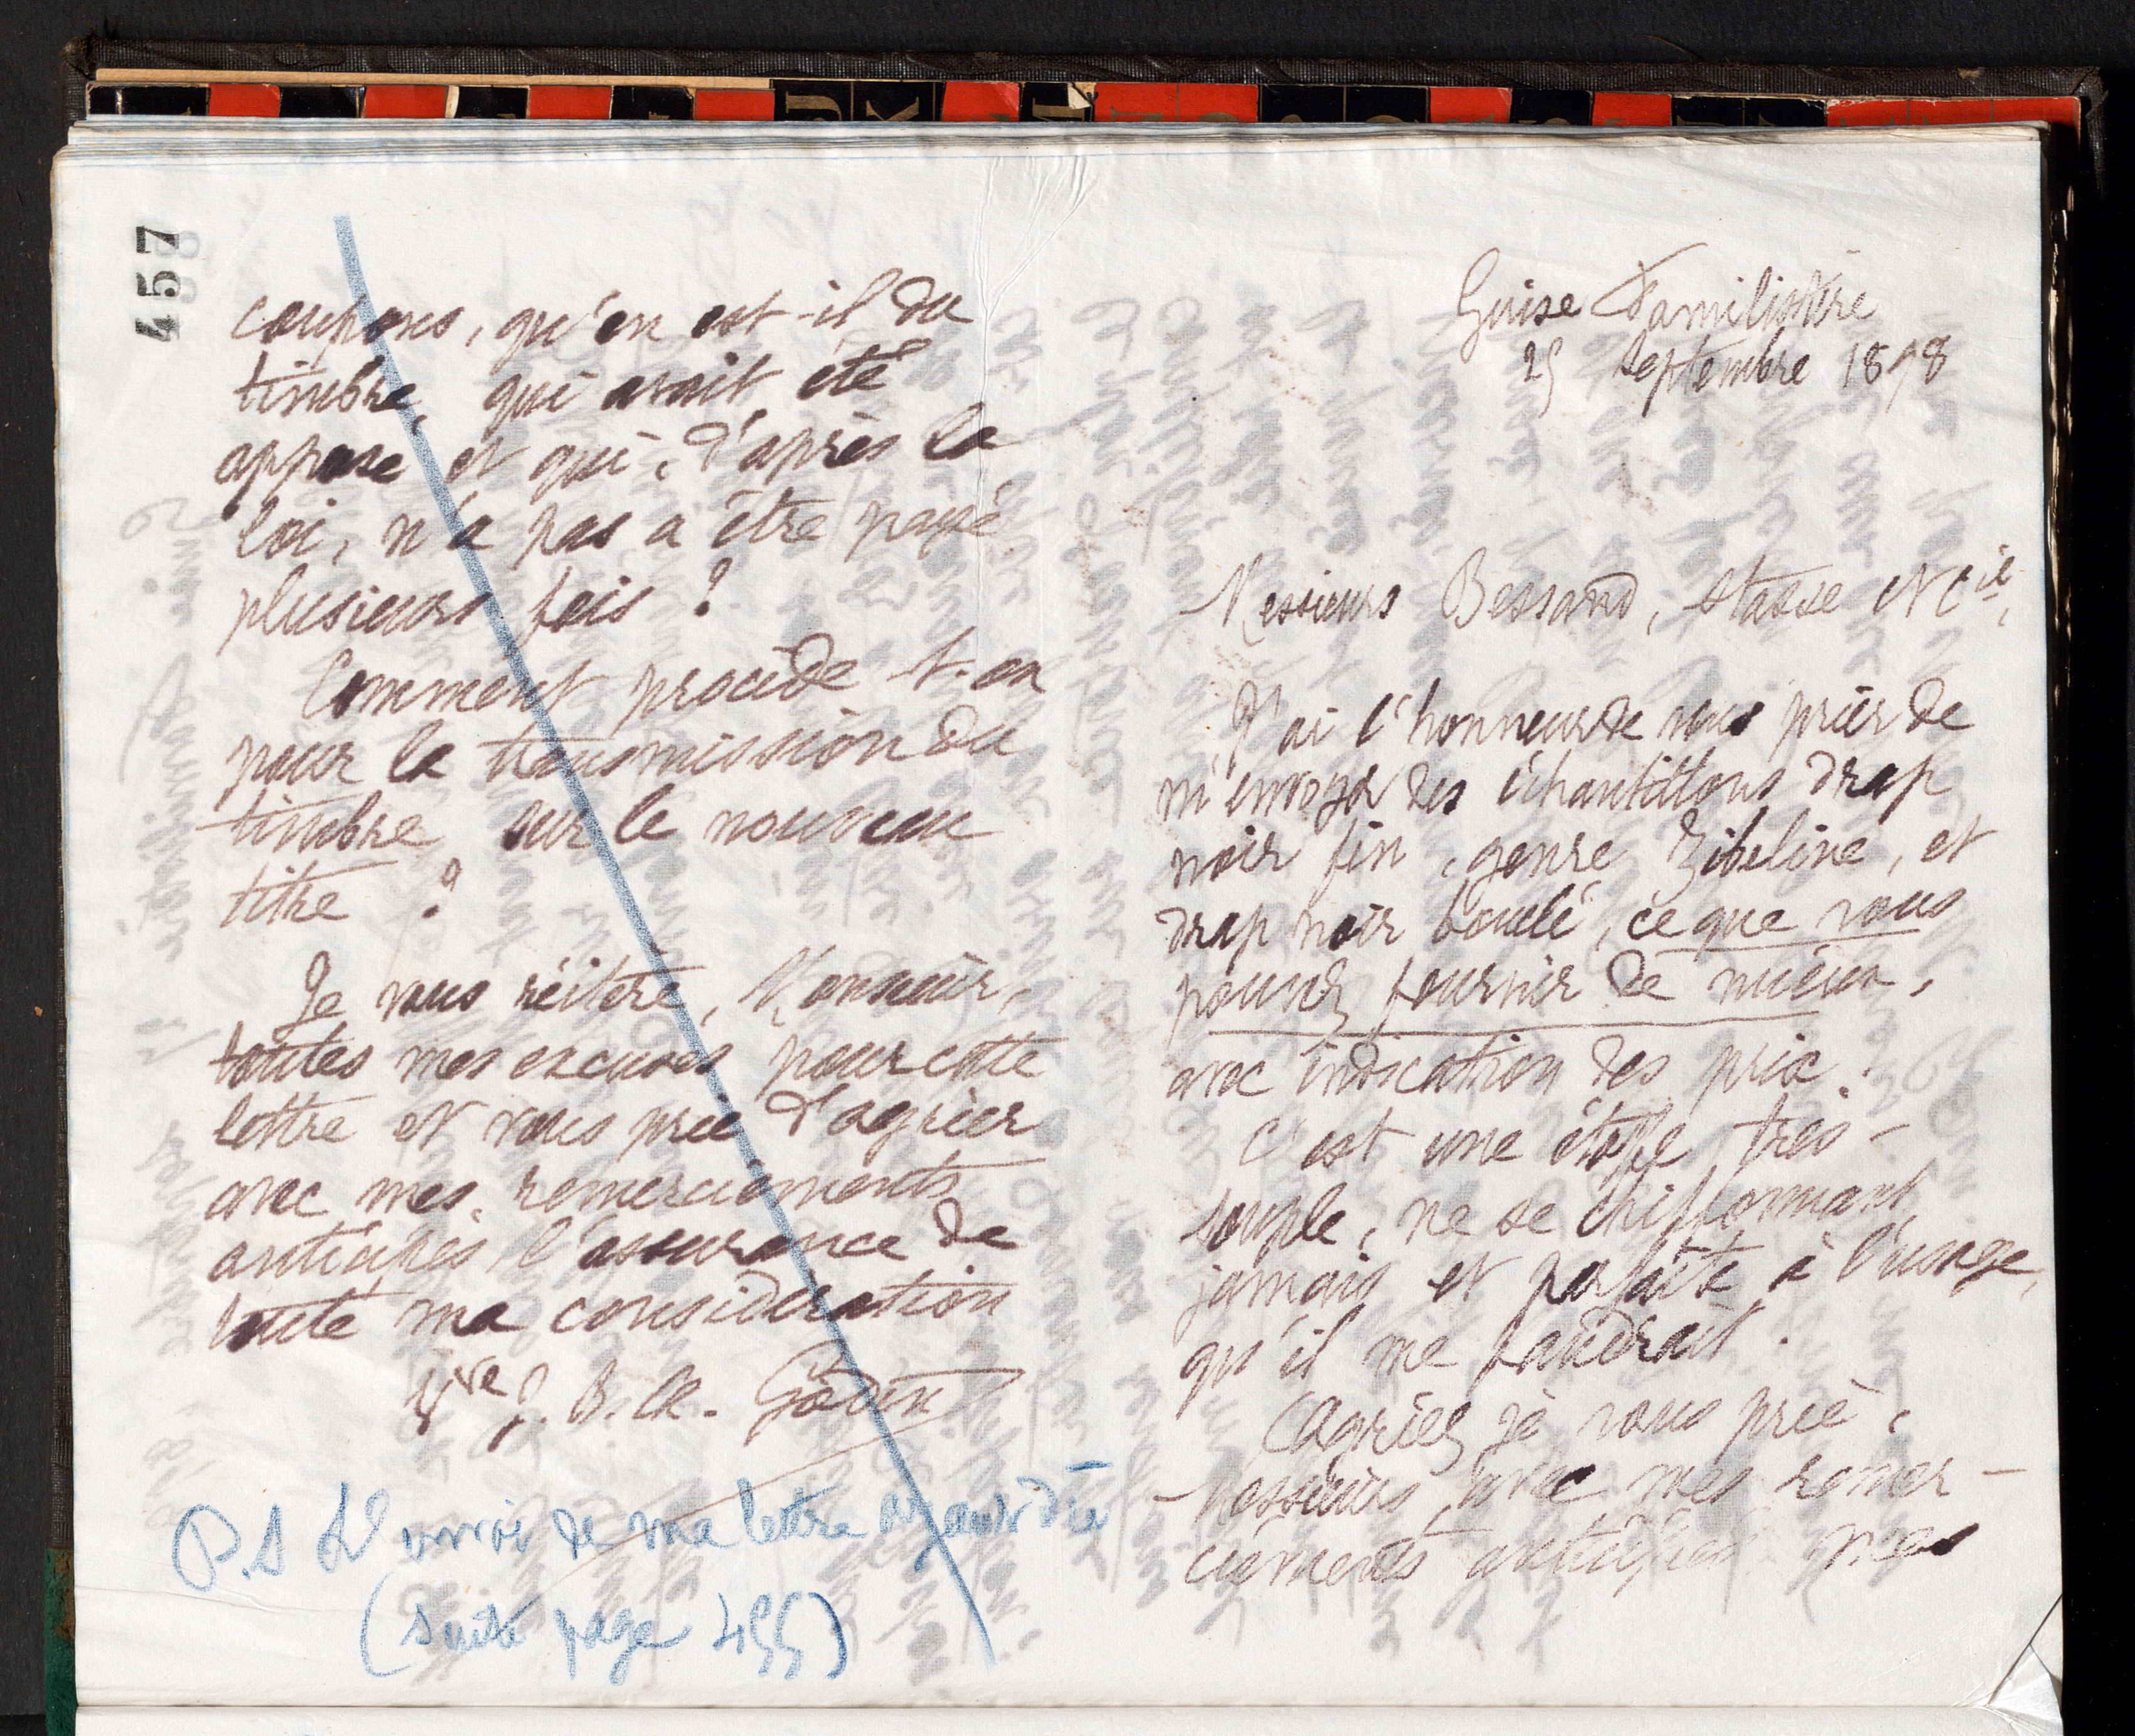 457
coupons, qu'en est-il du
timbre, qui avait été
apposé et qui, d'après la
loi, n'a pas a être payé
plusieurs fois ?
Comment procède t-on
pour la transmission du
timbre sur le nouveau
titre ?
Je vous réitère, Monsieur,
toutes mes excuses pour cette
lettre et vous prie d'agréer
avec mes remerciements
anticipés l'assurance de
toute ma considération
Vve J. B. A. Godin
P.S L'envoi de ma lettre
(suite page 455)
Guise Familistère
25 Septembre 1898
Messieurs Bessand, Stasse et Cie,
J'ai l'honneur de vous prier de
m'envoyer des échantillons drap
noir fin, genre Zibeline, et
drap noir bouclé, ce que vous
pouvez fournir de mieux,
avec indication des prix.
C'est une étoffe très-
souple, ne se chiffonnant
jamais et parfaite à l'usage,
qu'il me faudrait.
Agréez je vous prie,
Messieurs, avec mes remer-
ciements anticipés mes